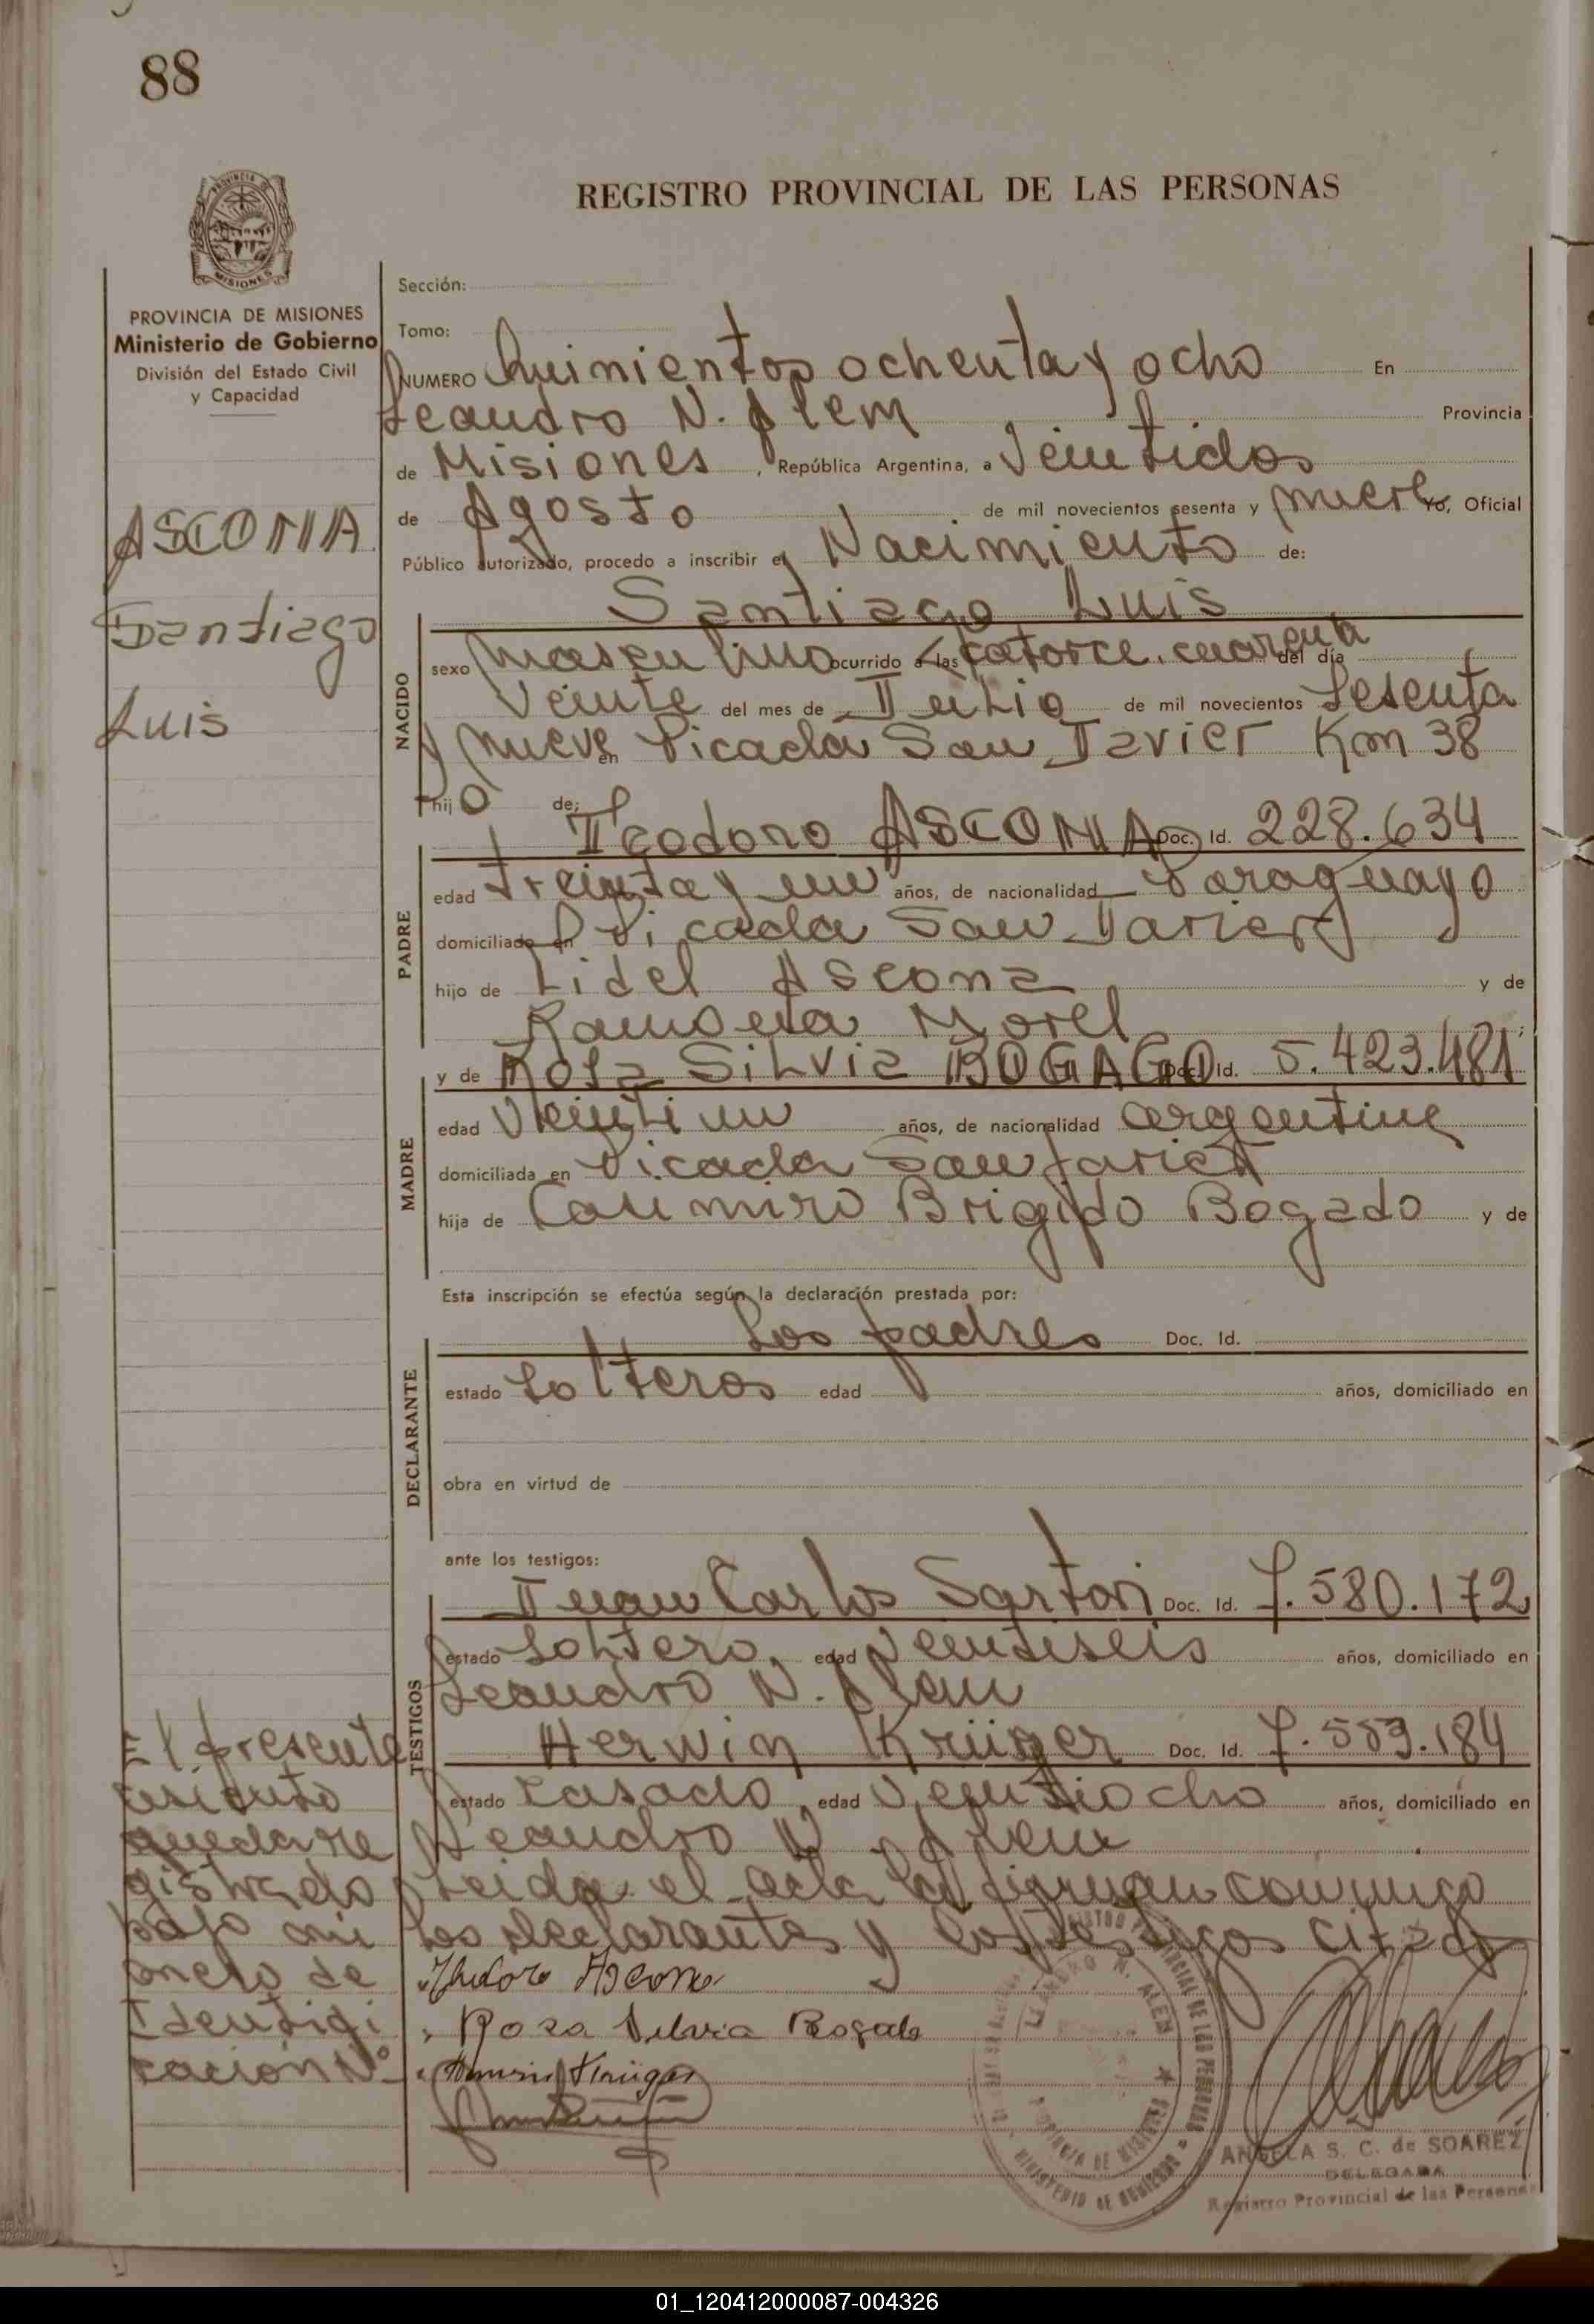 88
REGISTRO PROVINCIAL DE LAS PERSONAS
PROVINCIA DE MISIONES
MISIONES
PROVINCIA DE MISIONES
Ministerio de Gobierno
División del Estado Civil
y Capacidad
ASCONA
Santiago
Luis
Sección:
Tomo:
NUMERO Quinientos ochenta y ocho En
Leandro N. Alem Provincia
de Misiones, República Argentina, a Veintidos
de Agosto de mil novecientos sesenta y nueve Yo, Oficial
Público autorizado, procedo a inscribir el Nacimiento de:
Santiago Luis
NACIDO
sexo masculino ocurrido a las catorce. cuarenta del día
Veinte del mes de Julio de mil novecientos Sesenta
y nueve en Picada San Javier Km 38
hijo de:
Teodoro ASCONA Doc. Id. 228.634
PADRE
edad treinta y un años, de nacionalidad Paraguayo
domiciliado en Picada San Javier
hijo de Fidel Ascona y de
Ramona Morel
y de Rosa Silvia BOGADO Doc. Id. 5.423.481
MADRE
edad Veintiun años, de nacionalidad argentina
domiciliada en Picada San Javier
hija de Casimiro Brigido Bogado y de
Esta inscripción se efectúa según la declaración prestada por:
Los padres Doc. Id.
DECLARANTE
estado Solteros edad años, domiciliado en
obra en virtud de
ante los testigos:
Juan Carlos Sartori Doc. Id. 7.580.172
TESTIGOS
estado Soltero, edad Veintiseis años, domiciliado en
Leandro N. Alem
Herwin Krüger Doc. Id. 7.553.184
estado Casado, edad Veintiocho años, domiciliado en
Leandro N. Alem
Leida el acta la firman conmigo
los declarantes y los testigos citados
El presente
asiento
queda re
gistrado
bajo nú
mero de
Identifi
cación Nº
Theodoro Ascona
Rosa Silvia Bogado
Herwin Krüger
REGISTRO PROVINCIAL DE LAS PERSONAS
LEANDRO N. ALEM
PROVINCIA DE MISIONES
MINISTERIO DE GOBIERNO
ANGELA S. C. de SOAREZ
DELEGADA
Registro Provincial de las Personas
01_120412000087-004326